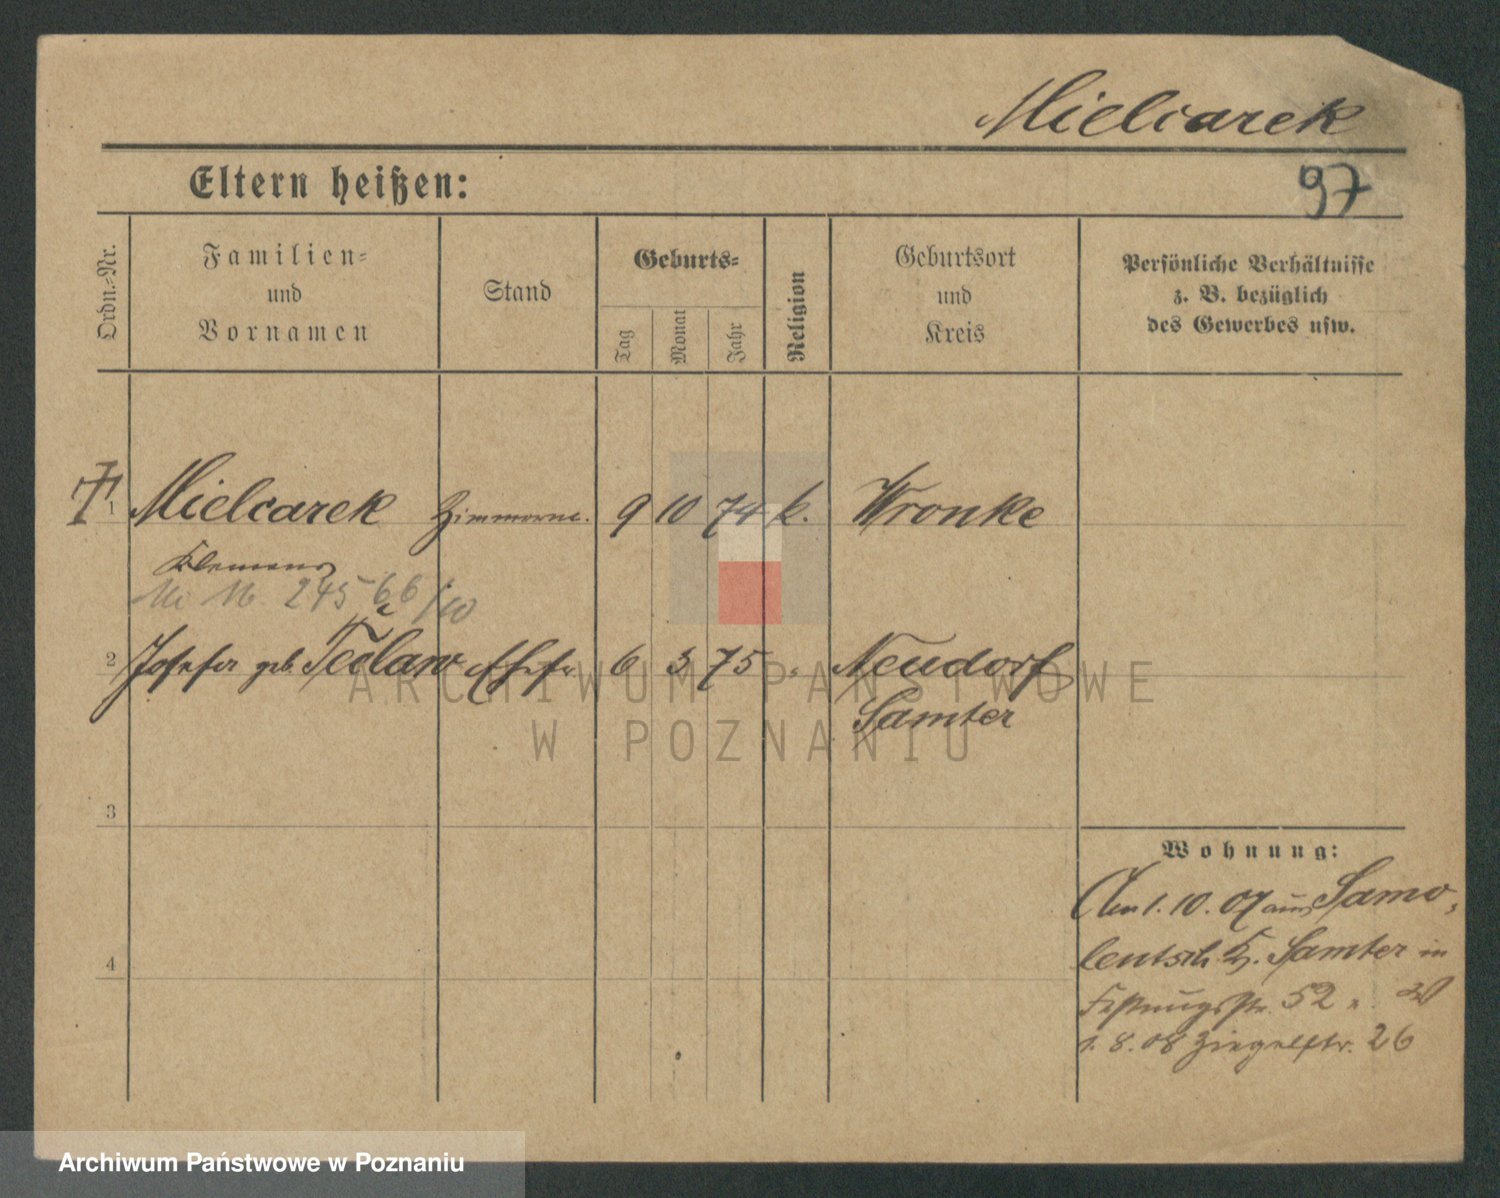 Mielcarek
Eltern heißen:
97
Ordn.-Nr.
Familien-
und
Vornamen
Stand
Geburts-
Tag
Monat
Jahr
Religion
Geburtsort
und
Kreis
Persönliche Verhältnisse
z. B. bezüglich
des Gewerbes usw.
1 Mielcarek Zimmerm. 9 10 74 k. Wronke
Klemens
245 66/10
2 Josefa geb. Teclaw Ehefr. 6 3 75 " Neudorf
Samter
ARCHIWUM PAŃSTWOWE
W POZNANIU
3
Wohnung:
Am 1. 10. 07 aus Samo-
lentsch K. Samter in
Festungsstr. 52
1. 8. 08 Ziegelstr. 26
4
Archiwum Państwowe w Poznaniu